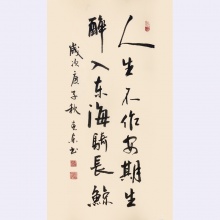 人生不作安期生
醉入东海骑长鲸
岁次庚子秋
书